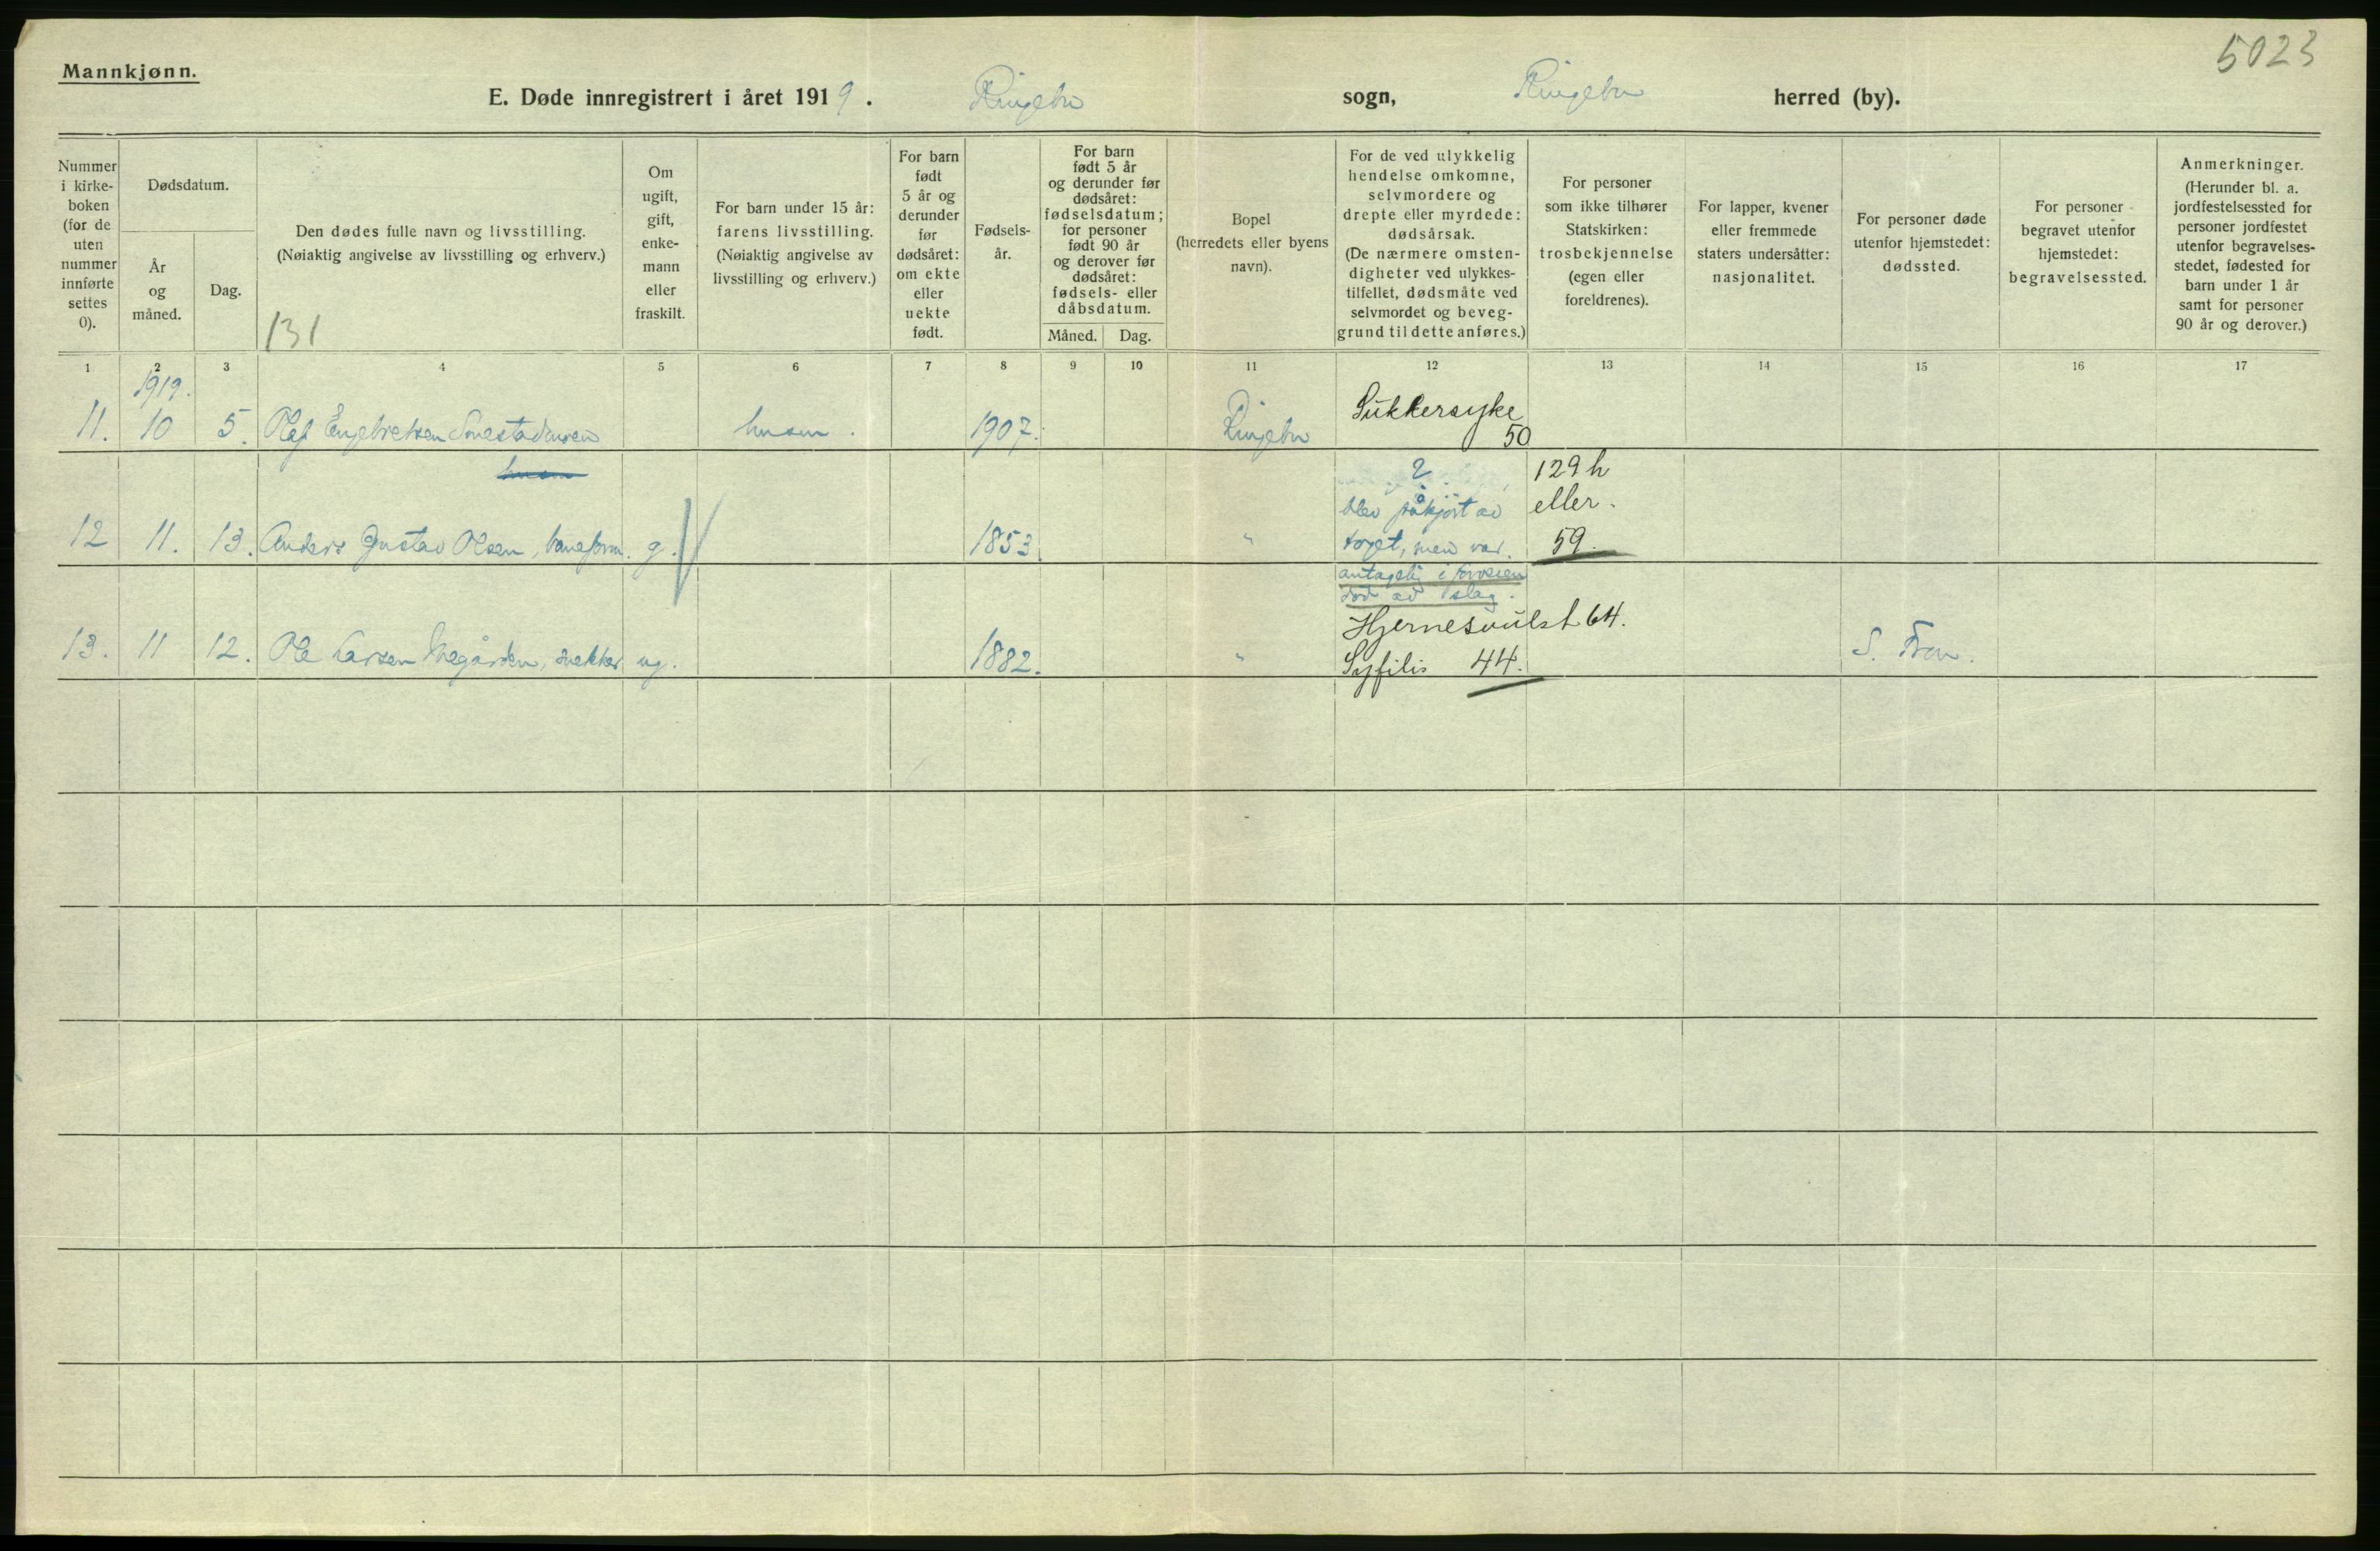 5023
Mannkjønn.
E. Døde innregistrert i året 1919. Ringebu sogn, Ringebu herred (by).
Nummer i kirke- boken (for de uten nummer innførte settes 0).
Dødsdatum.
År og måned.
Dag.
Den dødes fulle navn og livsstilling.
(Nøiaktig angivelse av livsstilling og erhverv.)
131
Om ugift, gift, enke- mann eller fraskilt.
For barn under 15 år: farens livsstilling.
(Nøiaktig angivelse av livsstilling og erhverv.)
For barn født 5 år og derunder før dødsåret: om ekte eller uekte født.
Fødsels- år.
For barn født 5 år og derunder før dødsåret: fødselsdatum; for personer født 90 år og derover før dødsåret: fødsels- eller dåbsdatum.
Måned. Dag.
Bopel (herredets eller byens navn).
For de ved ulykkelig hendelse omkomne, selvmordere og drepte eller myrdede: dødsårsak.
(De nærmere omsten- digheter ved ulykkes- tilfellet, dødsmåte ved selvmordet og beveg- grund til dette anføres.)
For personer som ikke tilhører Statskirken: trosbekjennelse (egen eller foreldrenes).
For lapper, kvener eller fremmede staters undersåtter: nasjonalitet.
For personer døde utenfor hjemstedet: dødssted.
For personer begravet utenfor hjemstedet: begravelsessted.
Anmerkninger.
(Herunder bl. a. jordfestelsessted for personer jordfestet utenfor begravelses- stedet, fødested for barn under 1 år samt for personer 90 år og derover.)
1 2 3 4 5 6 7 8 9 10 11 12 13 14 15 16 17
1919.
11. 10 5. Olaf Engebretsen husm. 1907. Ringebu Sukkersyke 50
husm
2 129 h
blev påkjørt av eller.
12 11. 13. Anders Gustav Olsen, baneform. g. 1853 " toget, men var. 59.
antagelig i forveien
død av slag.
Hjernesvulst 64.
13. 11 12. Ole Larsen snekker ug. 1882. " Syfilis 44. S. Fron.